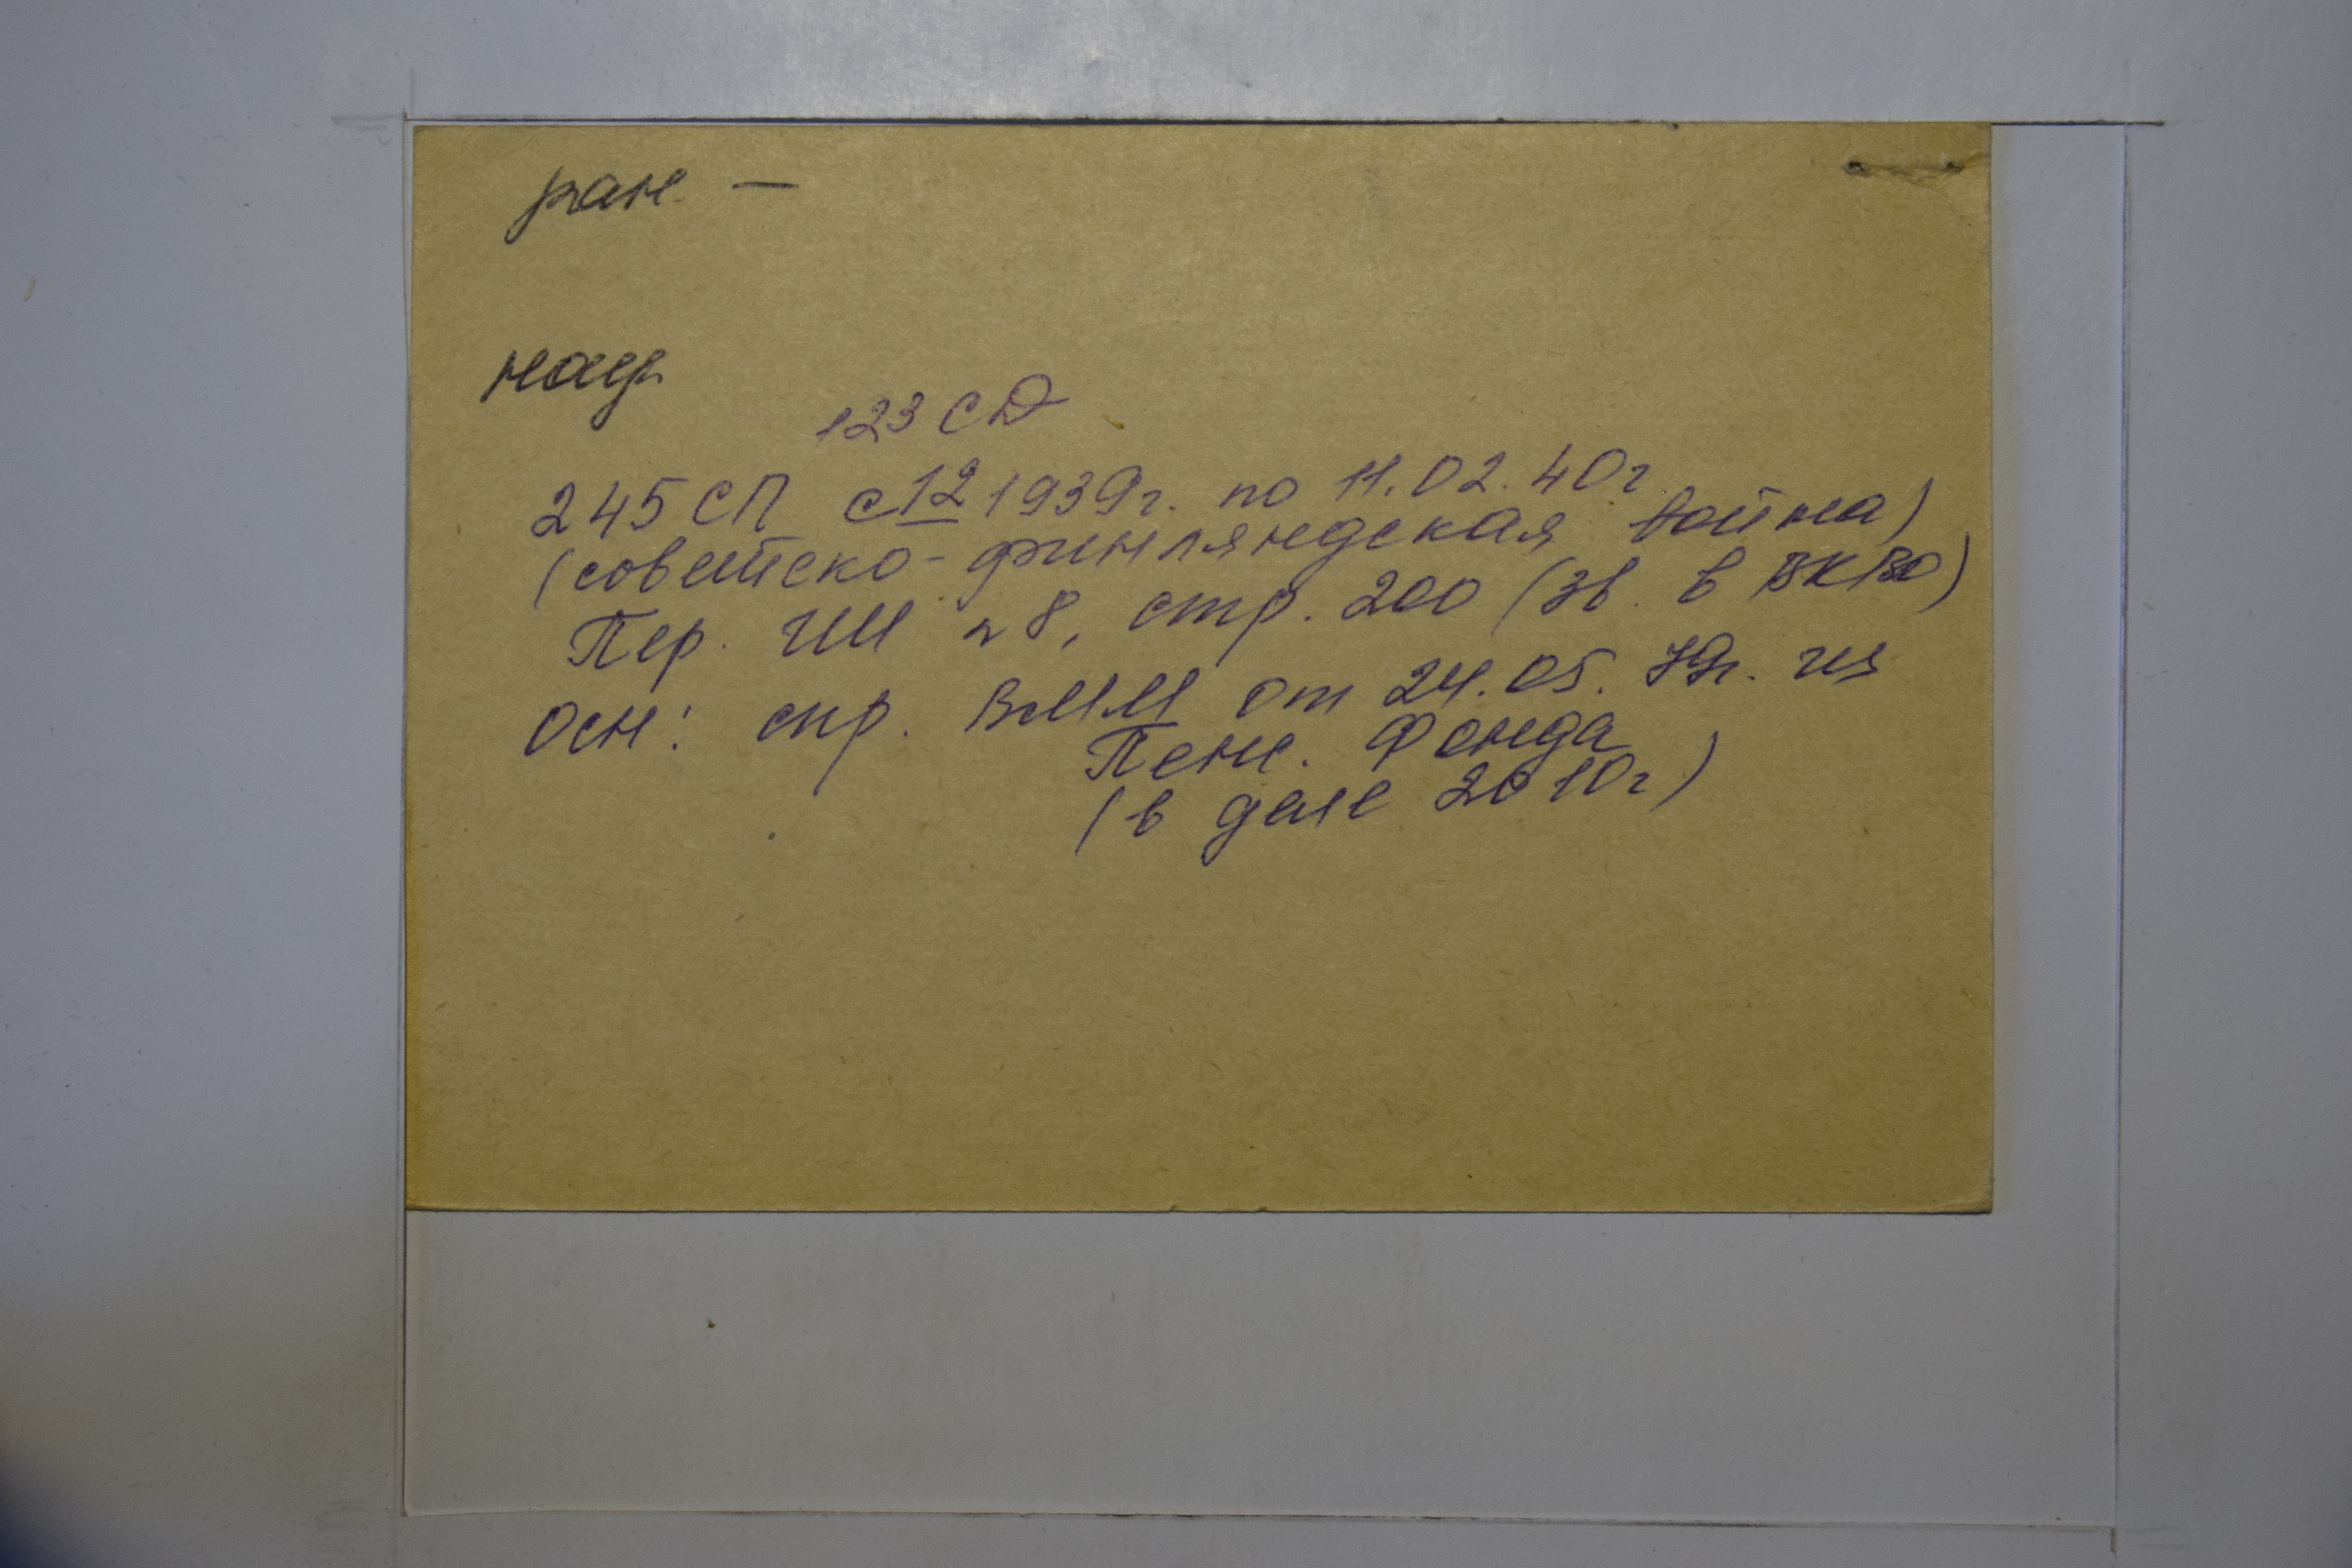 ран. —
нагр.
123 СД
245 СП с 12 1939г. по 11.02.40г
(советско-финляндская война)
Пер. ГШ №8, стр. 200 (зв. в ВКВО)
Осн: спр. ВММ от 24.05.79г. из
Пенс. Фонда
(в деле 2010г)